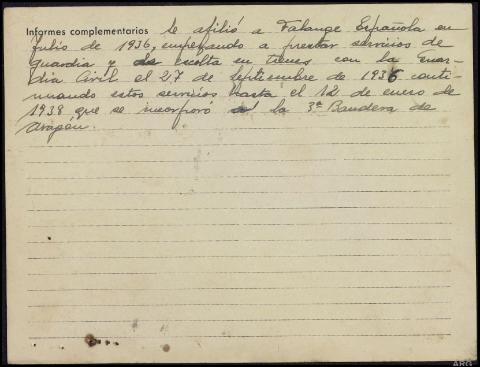 Informes complementarios Se afilió a Falange Española en
julio de 1936, empezando a prestar servicios de
guardia y de escolta en trenes con la Guar-
dia Civil el 27 de Septiembre de 1936 conti-
nuando estos servicios hasta el 12 de enero de
1938 que se incorporó a la 3ª Bandera de
Aragón.
ARG